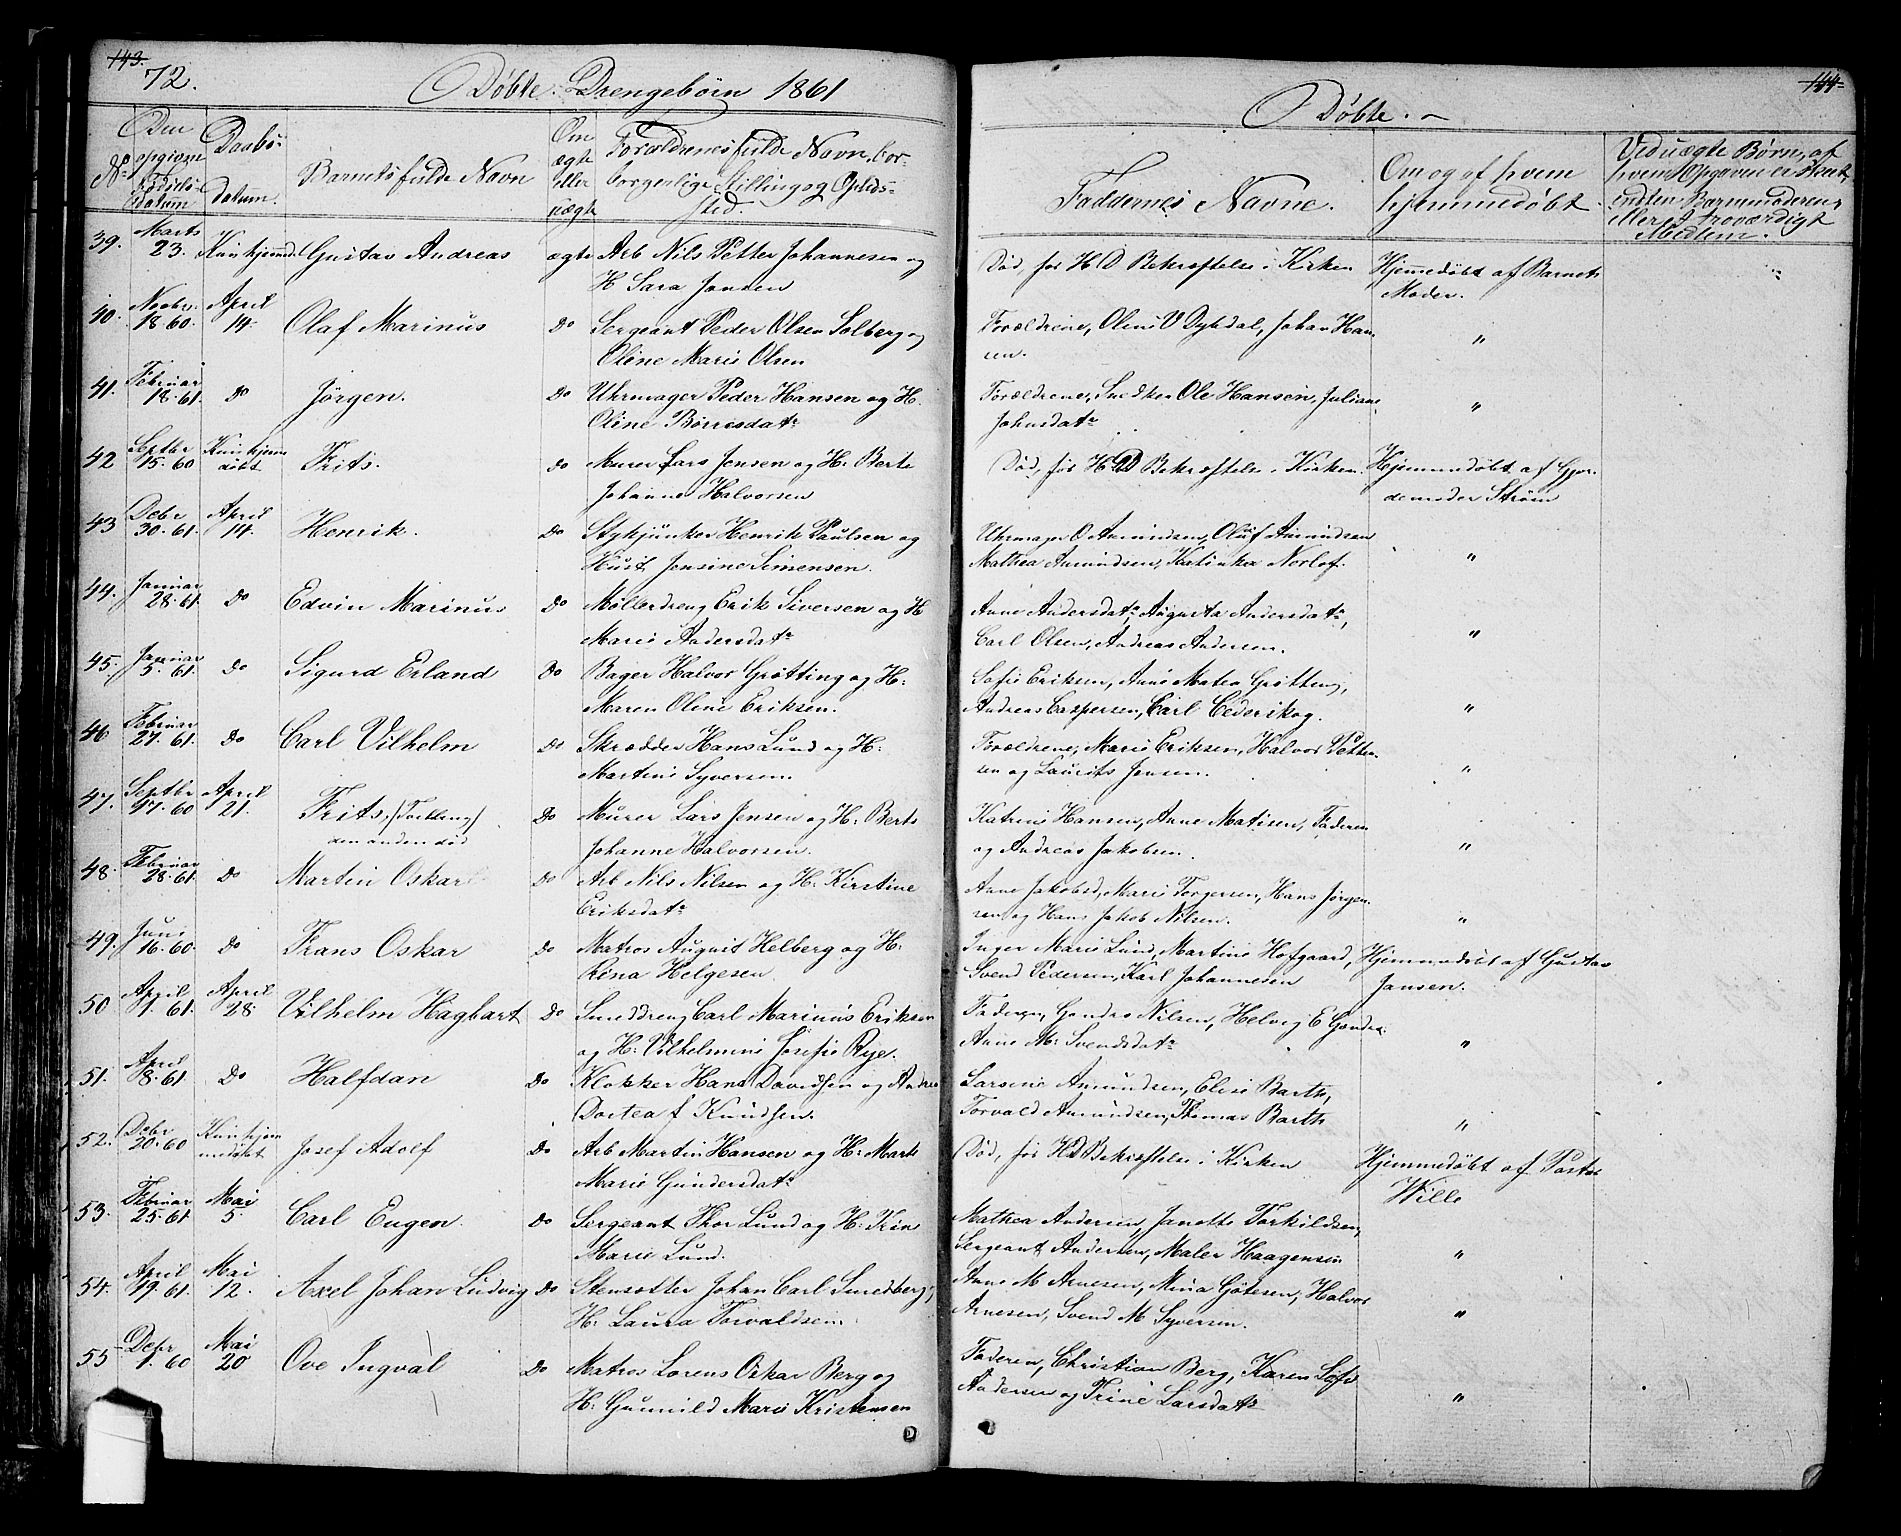 143. 144
72.
Døbte Drengebørn 1861
Døbte.
No Den opgivne Fødsels-Datum Daabs-datum. Barnets fulde Navn Om ægte eller uægte Forældrenes fulde Navn, borgerlige Stilling og Opholdssted. Faddernes Navne. Om og af hvem hjemmedøbt. Ved uægte Børn, af hvem Opgaven er skeet, enten Barnemoderen eller et troværdigt Medlem.
39. Marts 23. Kun hjemmed. Gustav Andreas ægte Arb Nils Petter Johannesen og Død, før H D Bekræftelse i Kirken Hjemmedøbt af Barnets
H Sara Jansen Moder.
40. Novbr. 18 60. April 14 Olaf Marinus Do Sergeant Peder Olsen Solberg og Forældrene, Olens V Dykdal, Johan Han- "
Oline Marie Olsen sen.
41. Februar 18. 61. do Jørgen. Do Uhrmager Peder Hansen og H. Forældrene, Snedker Ole Hansen, Juliane "
Oline Børresdatr Johnsdatr
42 Septbr 15. 60 Kun hjemmedøbt Frits. do Murer Lars Jensen og H: Berte Død, før H D Bekræftelse i Kirken Hjemmedøbt af Gjor-
Johanne Halvorsen demoder Strøm
43 Decbr 30. 61. April 14. Henrik. Do Stykjunker Henrik Paulsen og Uhrmager O Amundsen, Oluf Amundsen
Hust Jensine Simensen. Mathea Amundsen, Katinka Norlof. "
44. Januar 28. 61. Do Edvin Marinus Do Møllerdreng Erik Siversen og H Anne Andersdatr, Augusta Andersdatr,
Marie Andersdatr Carl Olsen, Andreas Andersen. "
45. Januar 5. 61. do Sigurd Erland Do Bager Halvor Grøtting og H: Sofie Eriksen, Anne Matea Grøtteng,
Maren Oline Eriksen. Andreas Caspersen, Carl Cederikog. "
46 Februar 27. 61. do Carl Vilhelm Do Skrædder Hans Lund og H: Forældrene, Marie Eriksen, Halvor Petter-
Martine Syversen. sen og Laurits Jensen. "
47. Septbr 17. 60 April 21. Frits, (Tvilling) Do Murer Lars Jensen og H: Berte Katrine Hansen, Anne Matisen, Faderen
den anden død Johanne Halvorsen. og Andreas Jakobsen. "
48. Februar 28. 61 Do Martin Oskar Do Arb Nils Nilsen og H: Kirstine Anne Jakobsd, Marie Torgersen, Hans Jørgen-
Eriksdatr sen og Hans Jakob Nilsen. "
49. Juni 16. 60. do Frans Oskar do Matros August Helberg og H: Inger Marie Lund, Martine Hofgaard, Hjemmedøbt af Gustav
Rina Helgesen Svend Pedersen, Karl Johannesen Jansen.
50 April 1. 61. April 28. Vilhelm Hagbart Do Smeddreng Carl Marinus Eriksen Faderen, Gondro Nilsen, Helvig E Gondro
og H: Vilhelmine Josefie Rye. Anne M: Svendsdatr "
51. April 8. 61 Do Halfdan Do Klokker Hans Davidsen og Larsine Amundsen, Elise Barth,
Dortea f Knudsen. Torvald Amundsen, Thomas Barth "
52. Decbr 20. 60 Kun hjemmedøbt Josef Adolf Do Arb Martin Hansen og H: Marte Død, før H D Bekræftelse i Kirken Hjemmedøbt af Pastor
Marie Gundersdatr Wille
53. Februar 25. 61 Mai 5. Carl Eugen. do Sergeant Thor Lund og H: Trine Mathea Andersen, Janette Torkildsen,
Marie Lund. Sergeant Andersen, Maler Haagensen "
54. April 19. 61. Mai 12. Axel Johan Ludvig do Stensætter Johan Carl Smedberg, Anne M Arnesen, Mina Gøtesen, Halvor
H: Laura Torvaldsen. Arnesen, Svend M Syversen. "
55 Decbr 1. 60 Mai 20 Ove Ingval Do Matros Lorens Oskar Berg og Faderen, Christian Berg, Karen Sofie
H: Gunnild Marie Kristensen Andersen og Trine Larsdatr "